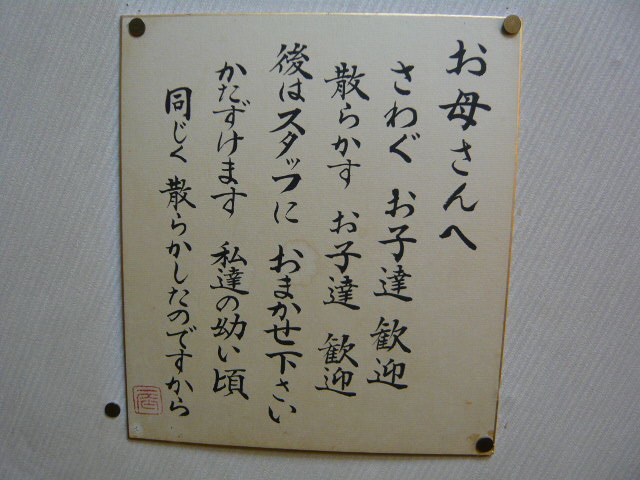 お母さんへ
さわぐ お子達 歓迎
散らかす お子達 歓迎
後はスタッフに おまかせ下さい
かたずけます 私達の幼い頃
同じく 散らかしたのですから